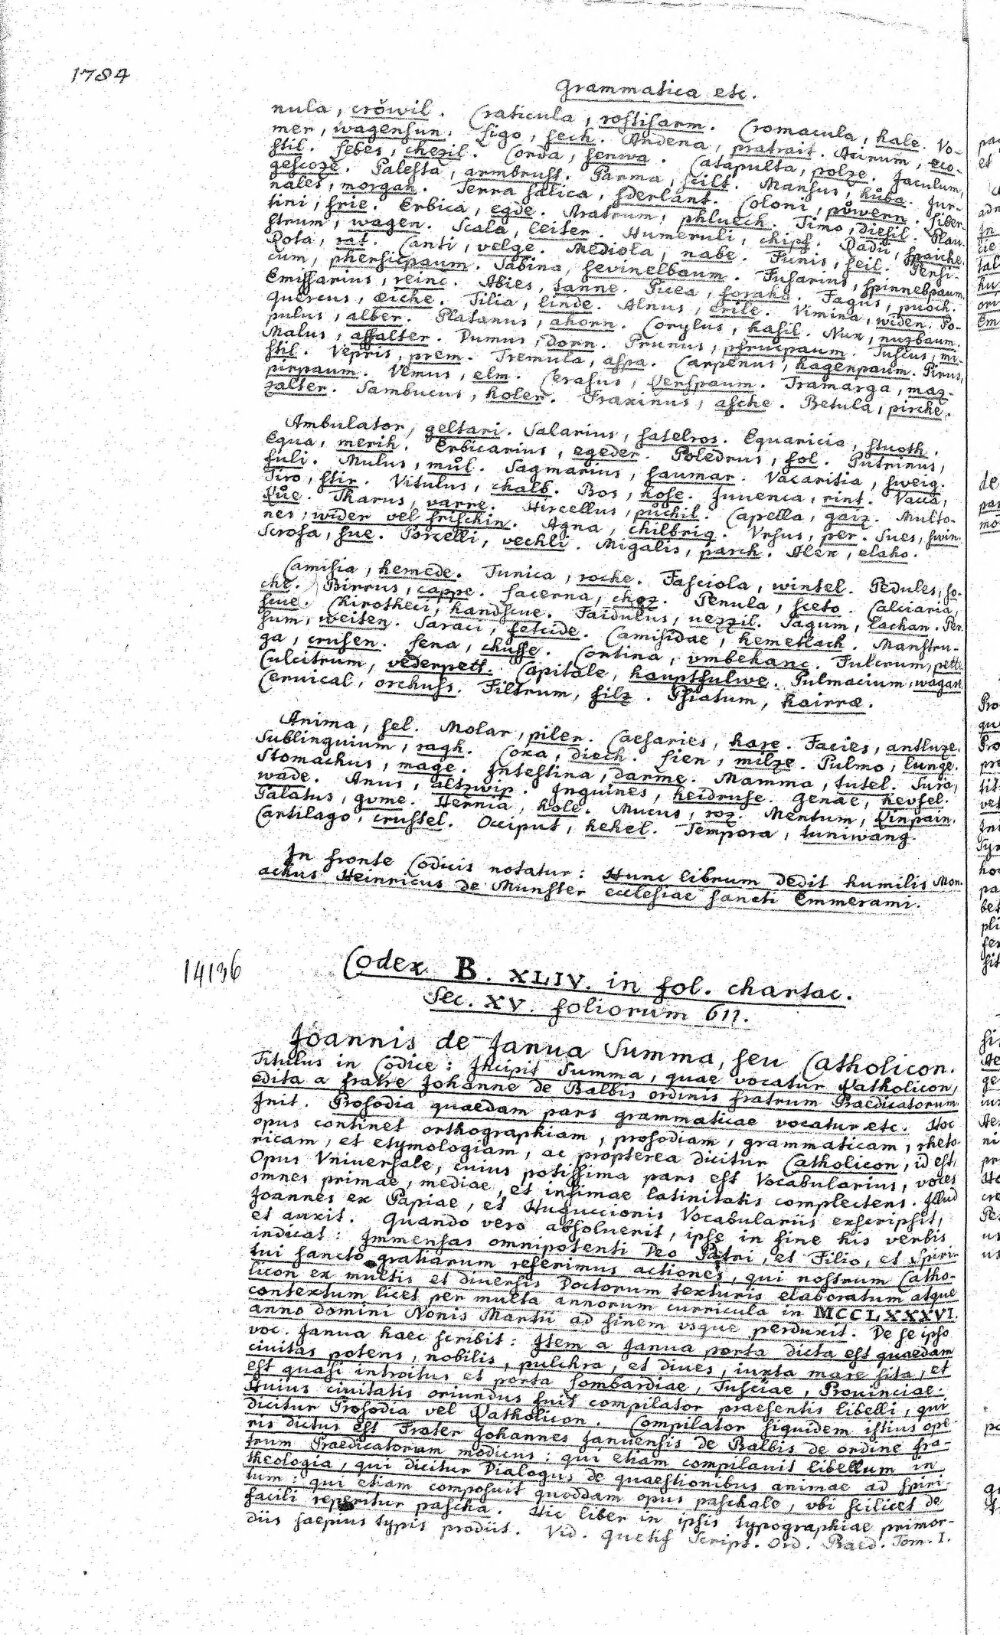 1784
Grammatica etc.
nula, cröwil. Craticula, rostisarn. Cromacula, hale. Vo-
mer, wagensun. Ligo, sech. Andena, pratrait. Acinum, eco-
stil. Sebes, chezil. Corda, senwa. Catapulta, polze. Jaculum,
gescoze. Palesta, armbrust. Parma, scilt. Mansus, huba. Jur-
nales, morgan. Terra salica, sderlant. Coloni, pöwern. Liber-
tini, frie. Erbica, egde. Aratrum, phluech. Timo, diesil. Plau-
strum, wagen. Scala, leiter. Humeruli, chipf. Radii, spaiche.
Rota, rat. Canti, velge. Mediola, nabe. Funis, seil. Persi-
cum, phersicpaum. Sabina, sevinelbaum. Fusarius, spinnelpaum.
Emissarius, reinc. Abies, tanne. Picea, forahe. Fagus, puoch.
Quercus, æiche. Tilia, linde. Alnus, erile. Vimina, widen. Po-
pulus, alber. Platanus, ahorn. Corylus, hasil. Nux, nuzbaum.
Malus, affalter. Dumus, dorn. Prunus, pfrucpaum. Tuscus, mi-
stil. Vepris, prem. Tremula, aspa. Carpenus, hagenpaum. Pirus,
pirpaum. Vlmus, elm. Cerasus, Cherspaum. Tramarga, maz-
zalter. Sambucus, holer. Fraxinus, asche. Betula, pirche.
Ambulator, zeltari. Salarius, satelros. Equaricia, stuoth.
Equa, merih. Erbicarius, egeder. Poledrus, fol. Putrinus,
fuli. Mulus, mül. Sagmarius, saumar. Vacaritia, sweig.
Tiro, stir. Vitulus, chalb. Bos, hose. Juuenca, rint. Vaca,
Chue. Tharus, varre. Hircellus, püchil. Capella, gaiz. Multo-
nes, wider vel frischin. Agna, chilbrig. Vrsus, per. Sues, swin.
Scrofa, sue. Porcelli, vechli. Migalis, parch. Alex, elaho.
Camisia, hemede. Tunica, roche. Fasciola, wintel. Pedules, so-
che. Birrus, cappe. Lacerna, choz. Penula, sceto. Calciaria,
scue. Chirotheci, handscue. Faidulus, uezzil. Sagum, Lachan. Per-
sum, weiten. Saraci, seteide. Camisidae, hemetlach. Manstru-
ga, crusen. Lena, chusse. Cortina, vmbehanc. Fulcrum, pette
Culcitrum, vederpett. Capitale, hauptfulwe. Pulmacium, wagart
Ceruical, orchuss. Filtrum, filz. Psiatum, hairræ.
Anima, sel. Molar, piler. Caesaries, hare. Facies, antluze.
Sublinguium, ragh. Coxa, diech. Lien, milze. Pulmo, lunge.
Stomachus, mage. Intestina, darme. Mamma, tutel. Sura,
wade. Anus, altzwip. Inguines, heidruse. Genae, heusel.
Palatus, gume. Hernia, hole. Mucus, roz. Mentum, Chinpain.
Cartilago, crustel. Occiput, hehel. Tempora, tuniwang.
In fronte Codicis notatur: Hunc librum dedit humilis Mon-
achus Heinricus de Munster ecclesiae sancti Emmerami.
14136
Codex B. XLIV. in fol. chartac.
Sec. XV. foliorum 611.
Joannis de Janua Summa, seu Catholicon.
Titulus in Codice: Incipit Summa, quae vocatur Catholicon,
edita a fratre Johanne de Balbis ordinis fratrum Praedicatorum.
Init. Prosodia quaedam pars grammaticae vocatur etc. Hoc
opus continet orthographiam, prosodiam, grammaticam, rheto-
ricam, et etymologiam, ac propterea dicitur Catholicon, id est,
Opus Vniuersale, cuius potissima pars est Vocabularius, voces
omnes primae, mediae, et infimae latinitatis complectens. Illud
Joannes ex Papiae, et Huguccionis Vocabulariis exscripsit,
et auxit. Quando vero absoluerit, ipse in fine his verbis
indicat: Immensas omnipotenti Deo Patri, et Filio, et Spiri-
tui sancto gratiarum referimus actiones, qui nostrum Catho-
licon ex multis et diuersis Doctorum texturis elaboratum atque
contextum licet per multa annorum curricula in MCCLXXXVI.
anno domini Nonis Martii ad finem vsque perduxit. De se ipso
voc. Janua haec scribit: Item a Janua porta dicta est quaedam
ciuitas potens, nobilis, pulchra, et diues, iuxta mare sita, et
est quasi introitus et porta Lombardiae, Tusciae, Prouinciae.
Huius ciuitatis oriundus fuit compilator praesentis libelli, qui
dicitur Prosodia vel Catholicon. Compilator siquidem istius ope-
ris dictus est Frater Johannes Januensis de Balbis de ordine fra-
trum Praedicatorum modicus: qui etiam compilauit libellum in
theologia, qui dicitur Dialogus de quaestionibus animae ad spiri-
tum: qui etiam composuit quoddam opus paschale, vbi scilicet de
facili reperitur pascha. Hic liber in ipsis typographiae primor-
diis saepius typis prodiit. Vid. Quetif Script. Ord. Praed. Tom. I.